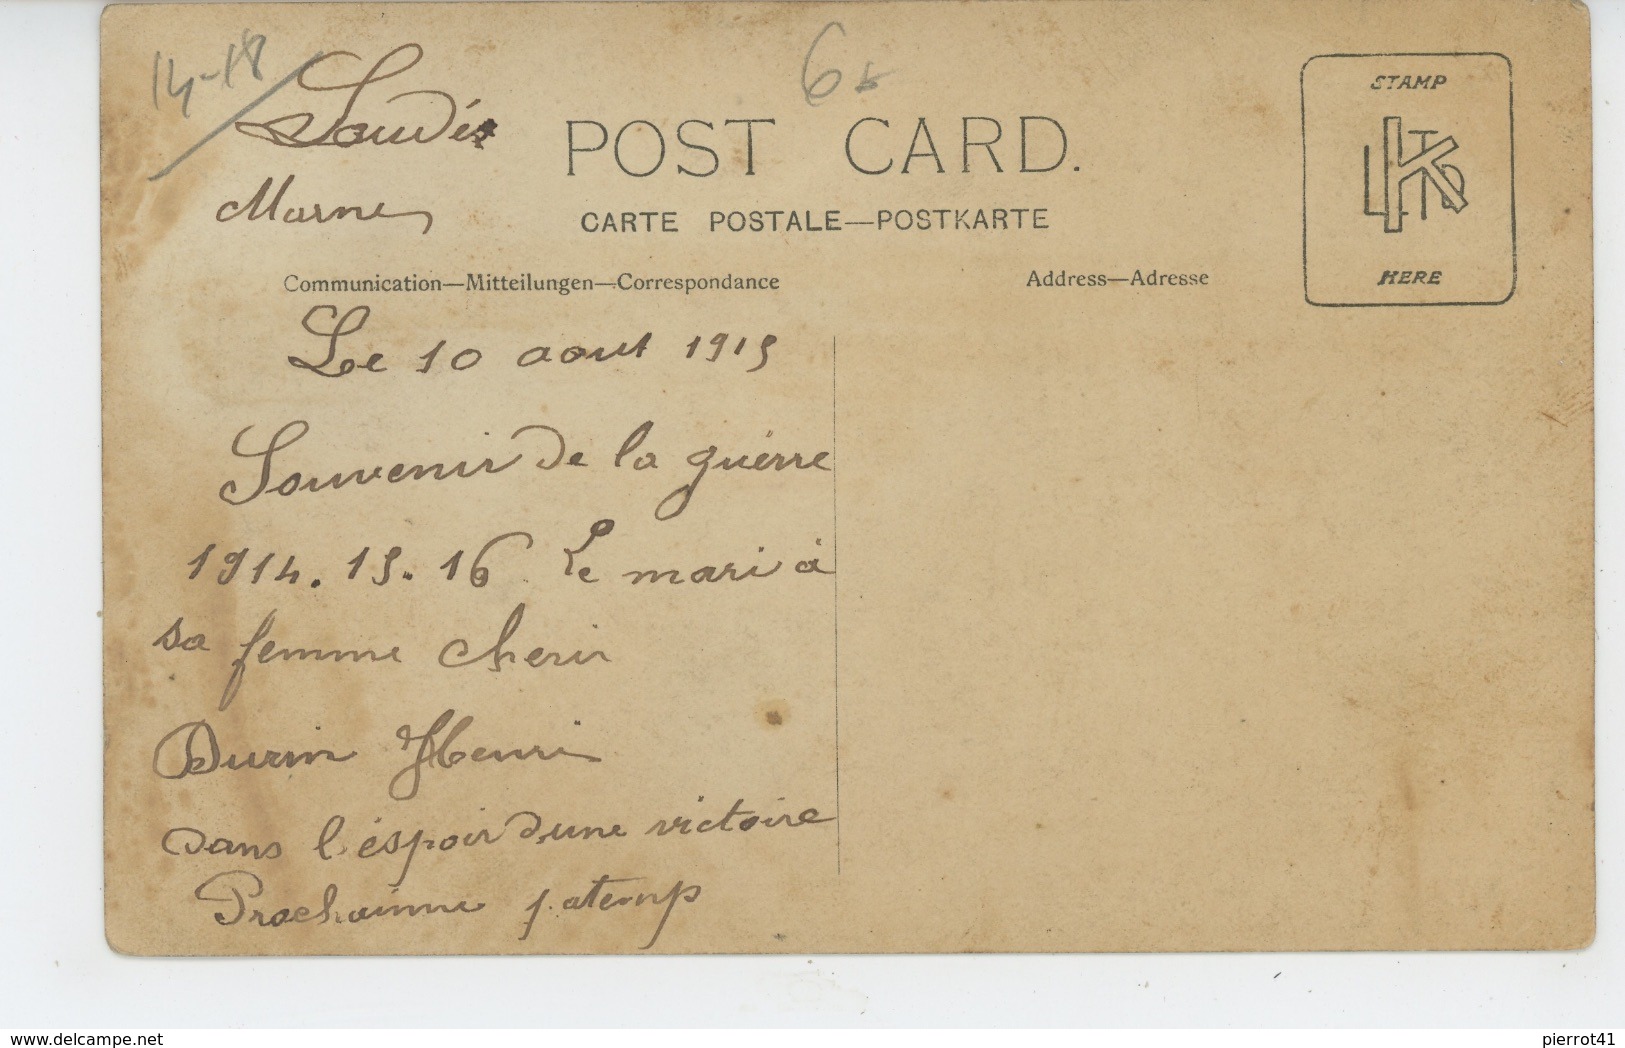 14-18
6
Soudé
Marne
POST CARD.
CARTE POSTALE—POSTKARTE
Communication—Mitteilungen—Correspondance
Address—Adresse
STAMP
K LTD
HERE
Le 10 aout 1915
Souvenir de la guérre
1914.15.16 Le mari à
sa femme cherir
Durin Henri
dans l'éspoir d,une victoire
Prochainne
www.delcampe.net
pierrot41